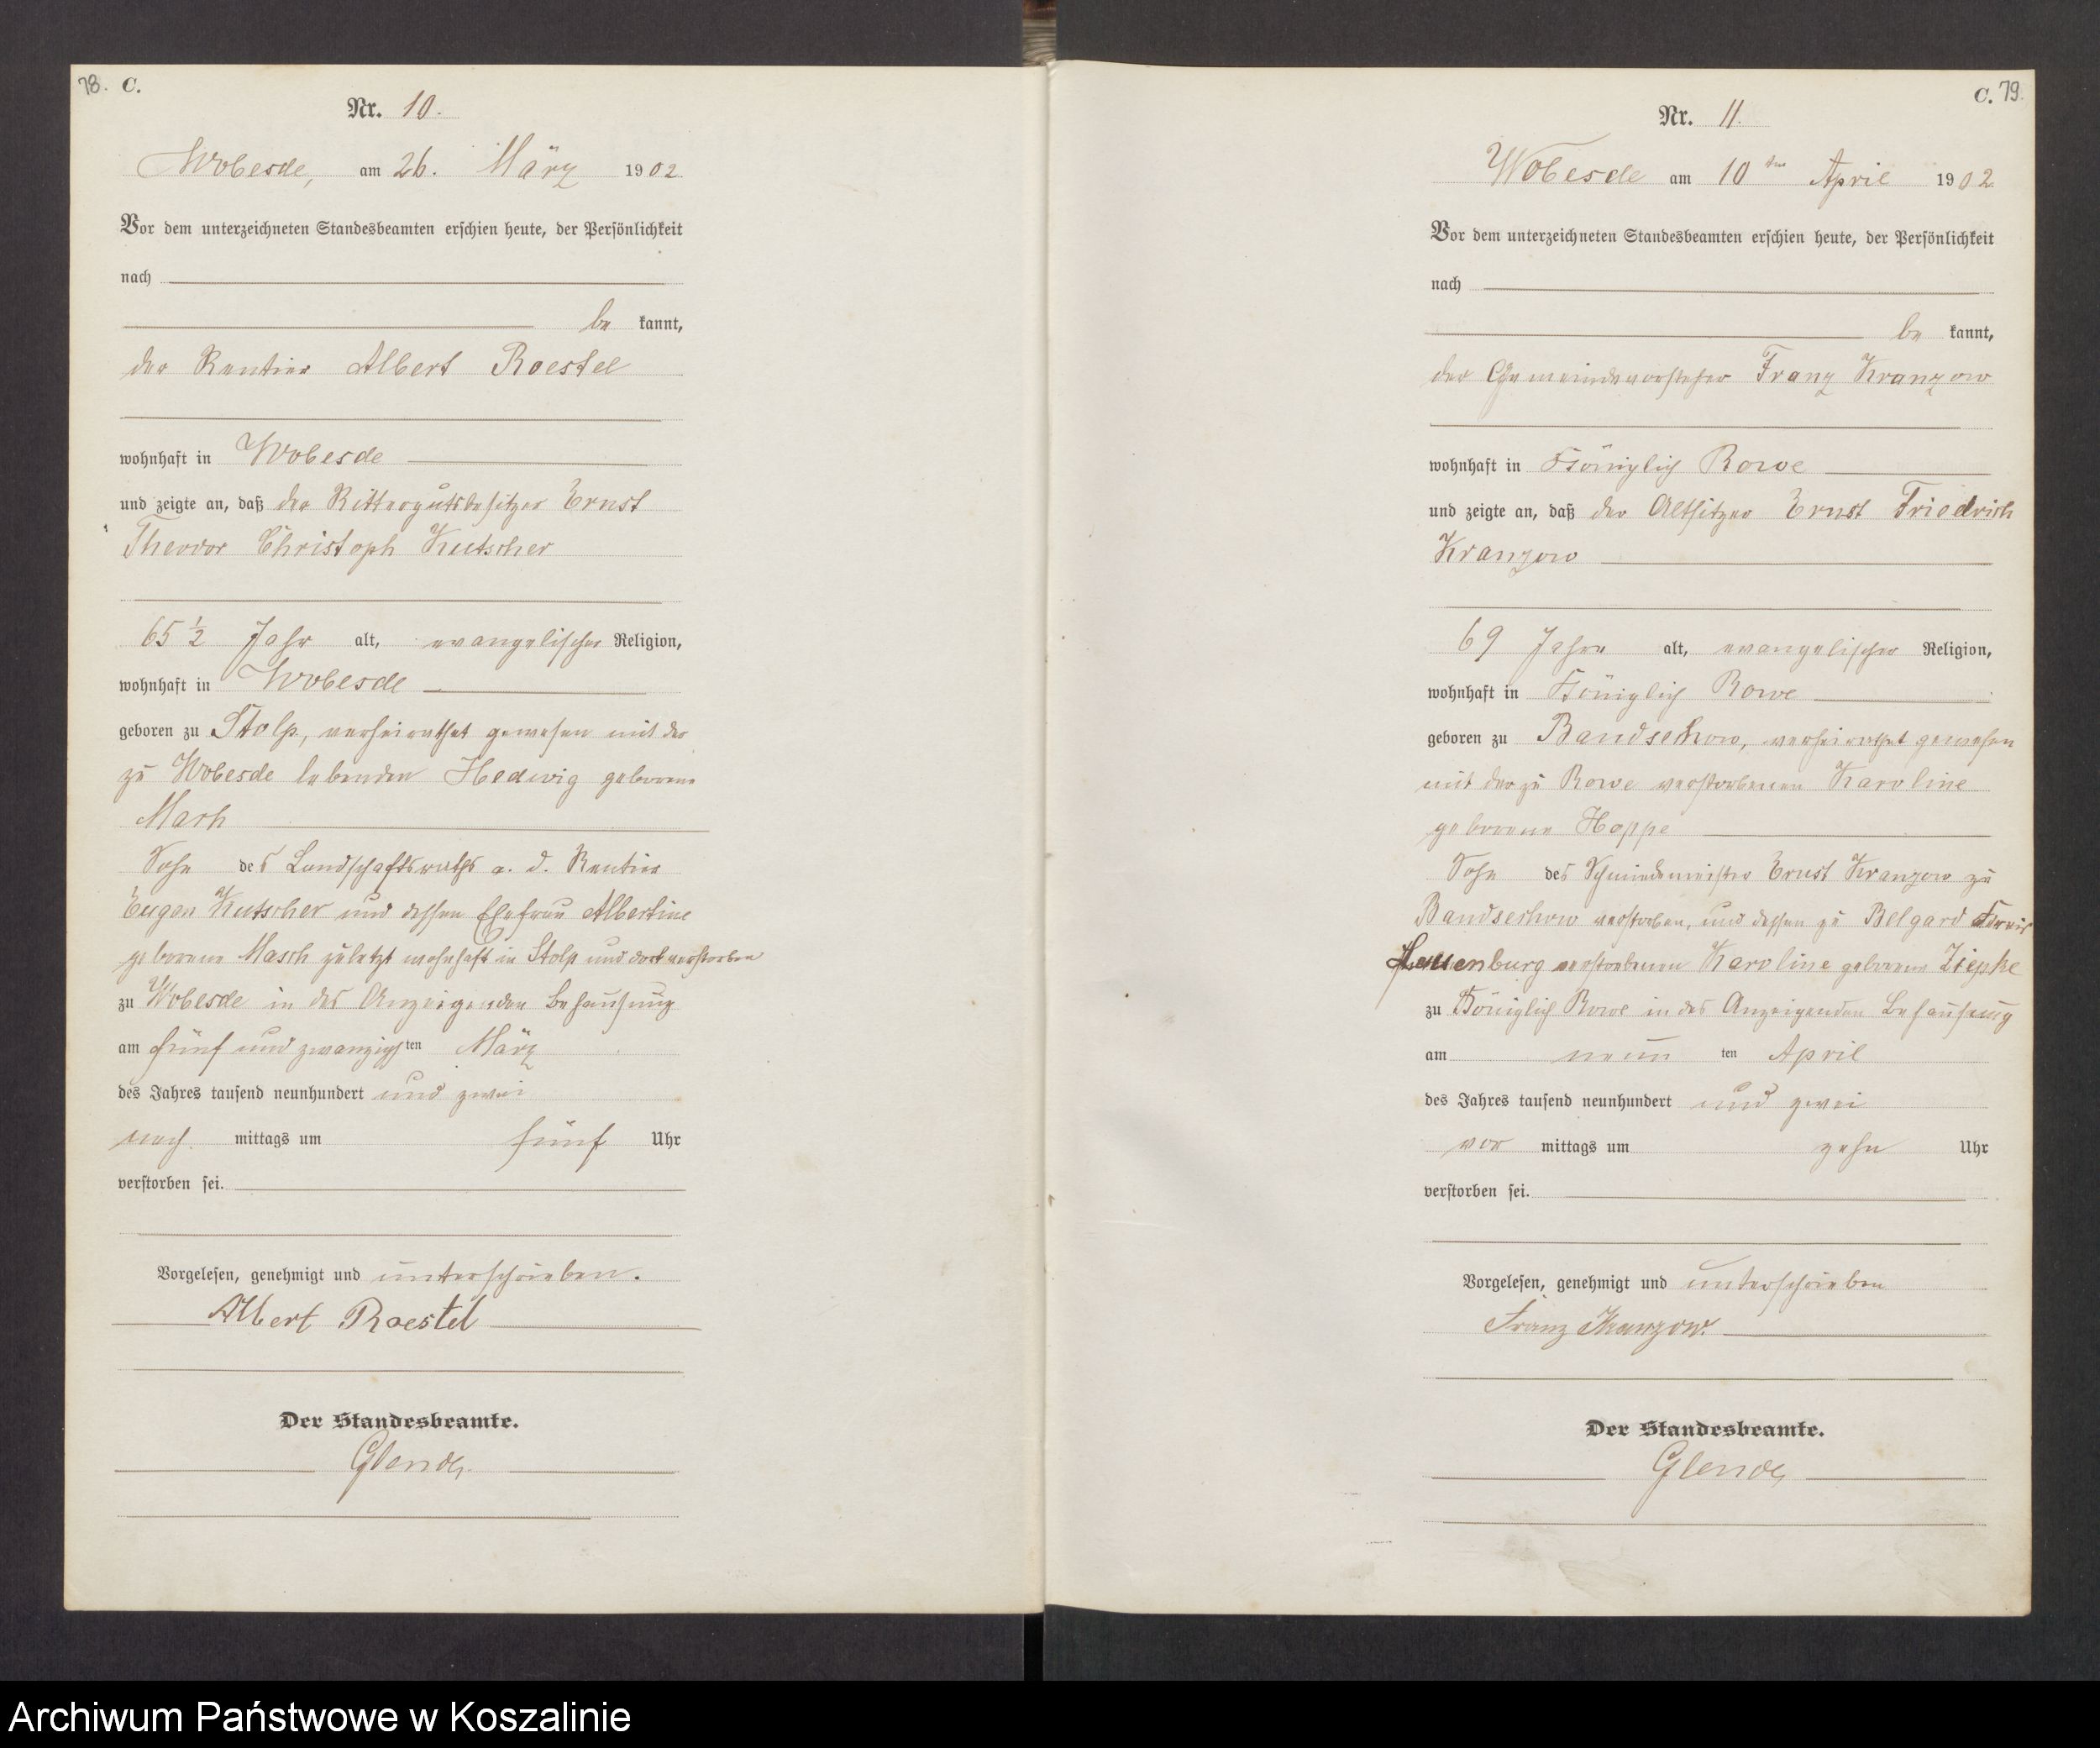 78. C.
Nr. 10.
Wobesde, am 26. März 1902
Vor dem unterzeichneten Standesbeamten erschien heute, der Persönlichkeit
nach
be kannt,
der Rentier Albert Roestel
wohnhaft in Wobesde
und zeigte an, daß der Rittergutsbesitzer Ernst
Theodor Christoph Kutscher
65 ½ Jahr alt, evangelischer Religion,
wohnhaft in Wobesde
geboren zu Stolp, verheirathet gewesen mit der
zu Wobesde lebenden Hedwig geborene
Mach
Sohn des Landschaftsraths a. D. Rentier
Eugen Kutscher und dessen Ehefrau Albertine
geborene Masch zuletzt wohnhaft in Stolp und dort verstorben
zu Wobesde in des Anzeigenden Behausung
am fünf und zwanzigsten März
des Jahres tausend neunhundert und zwei
nach mittags um fünf Uhr
verstorben sei.
Vorgelesen, genehmigt und unterschrieben.
Albert Roestel
Der Standesbeamte.
Glende
C. 79.
Nr. 11.
Wobesde am 10ten April 1902
Vor dem unterzeichneten Standesbeamten erschien heute, der Persönlichkeit
nach
be kannt,
der Gemeindevorsteher Franz Kranzow
wohnhaft in Königlich Rowe
und zeigte an, daß der Altsitzer Ernst Friedrich
Kranzow
69 Jahre alt, evangelischer Religion,
wohnhaft in Königlich Rowe
geboren zu Bandsechow, verheirathet gewesen
mit der zu Rowe verstorbenen Karoline
geborene Hoppe
Sohn des Schmiedemeister Ernst Kranzow zu
Bandsechow verstorben, und dessen zu Belgard Kreis
Lauenburg verstorbenen Karoline geborene Ziepke
zu Königlich Rowe in des Anzeigenden Behausung
am neun ten April
des Jahres tausend neunhundert und zwei
vor mittags um zehn Uhr
verstorben sei.
Vorgelesen, genehmigt und unterschrieben
Franz Kranzow.
Der Standesbeamte.
Glende
Archiwum Państwowe w Koszalinie